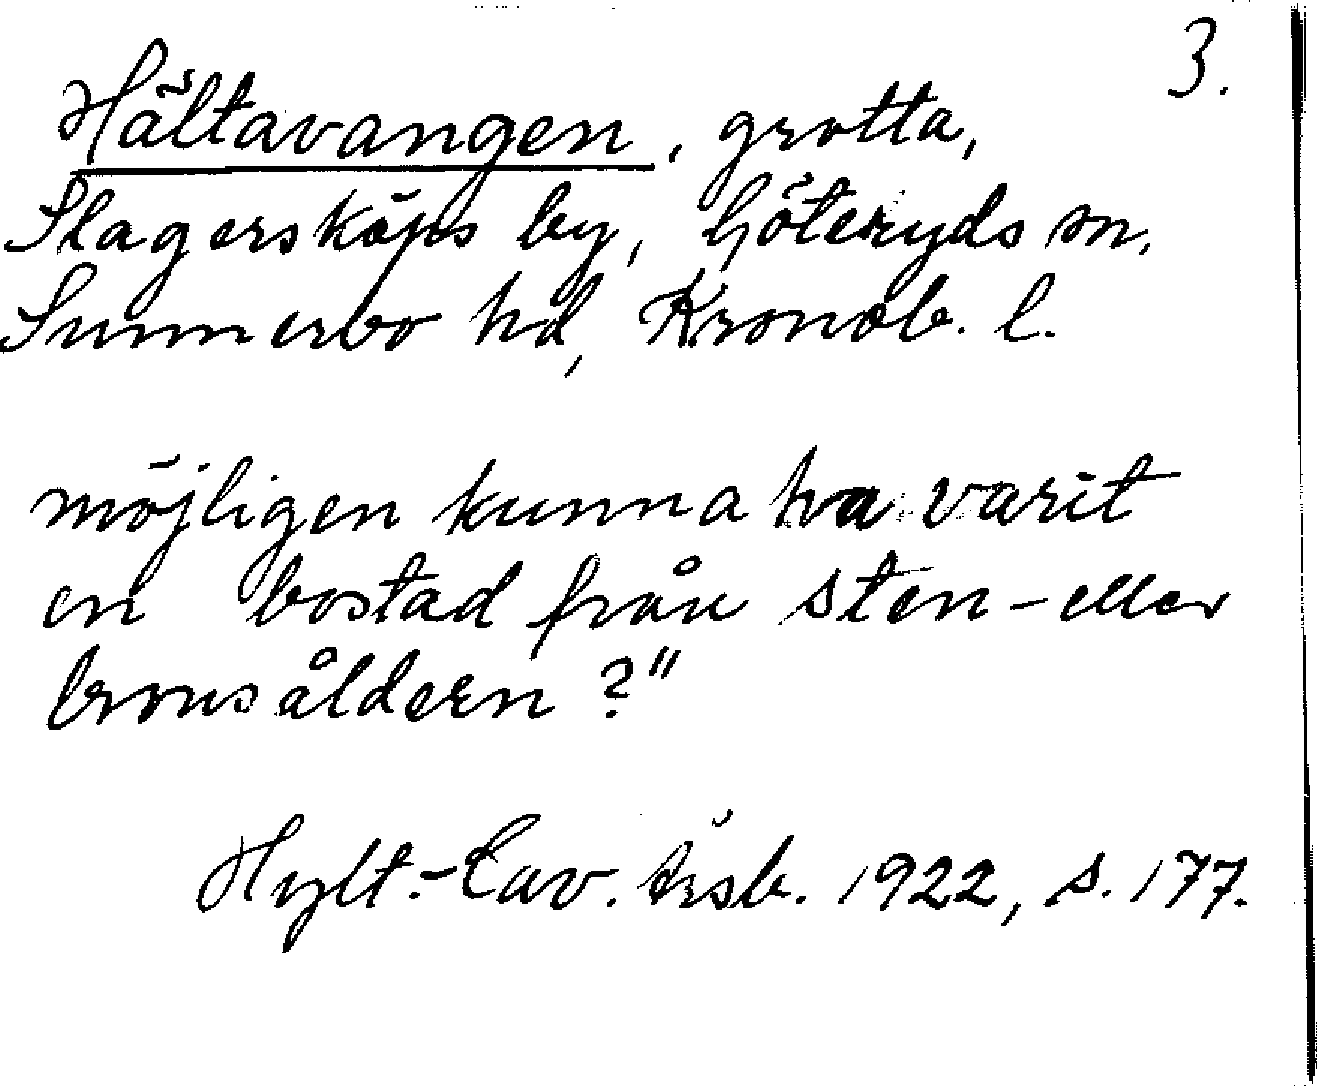 3.
Hältavangen, grotta,
Slagersköps by, Göteryds sn,
Sunnerbo hd, Kronob. l.
möjligen kunna ha varit
en bostad från sten-eller
bronsåldern?"
Hylt.-Cav. Årsb. 1922, s. 177.